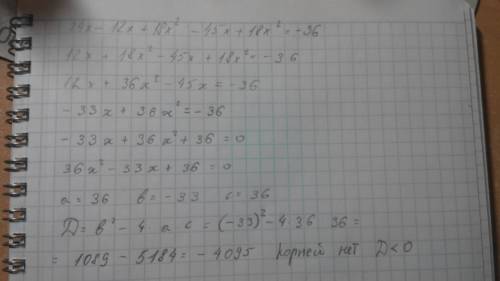 24x - 12x + 18x² - 45x + 18x² = -36
12x + 18x² - 45x + 18x² = -36
12x + 36x² - 45x = -36
- 33x + 36x² = -36
- 33x + 36x² + 36 = 0
36x² - 33x + 36 = 0
a = 36 b = -33 c = 36
D = b² - 4 a c = (-33)² - 4·36 36 =
= 1089 - 5184 = - 4095 корней нет D < 0